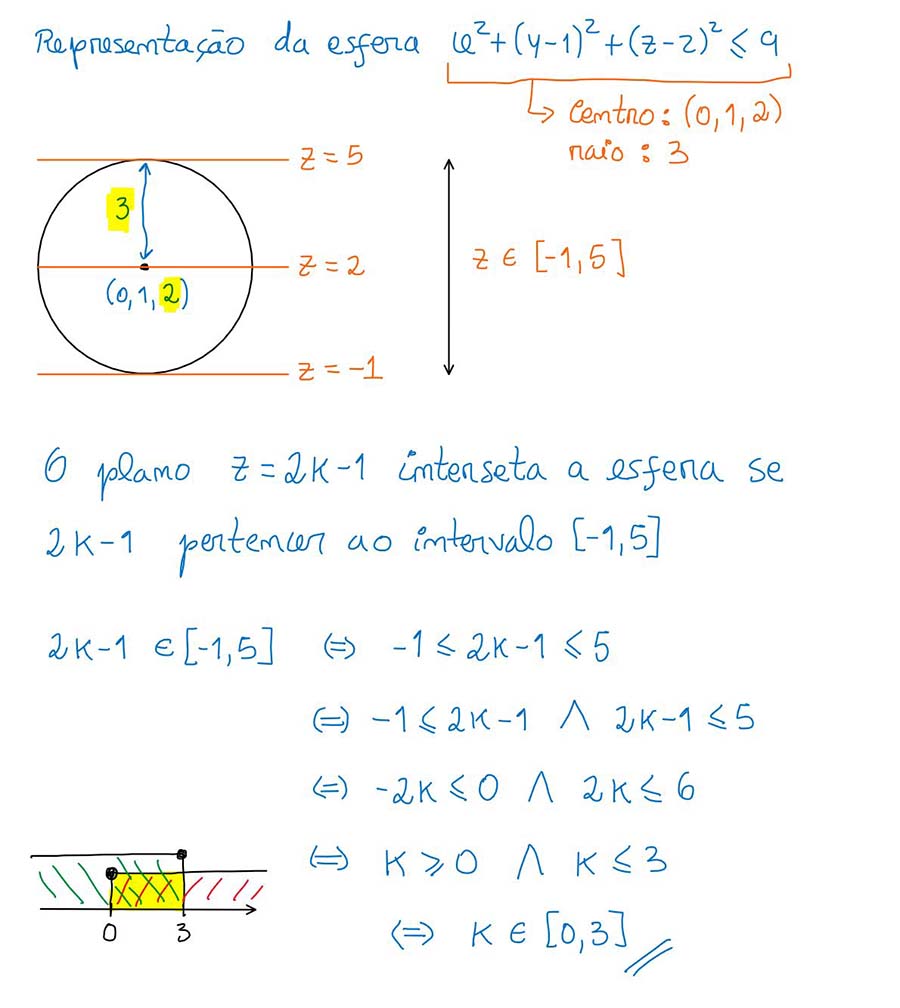 Representação da esfera x²+(y-1)²+(z-2)² ≤ 9
↳ Centro: (0,1,2)
raio: 3
z = 5
3
z ∈ [-1,5]
z = 2
(0,1,2)
z = -1
O plano z = 2k-1 interseta a esfera se
2k-1 pertencer ao intervalo [-1,5]
2k-1 ∈ [-1,5] ⇔ -1 ≤ 2k-1 ≤ 5
⇔ -1 ≤ 2k-1 ∧ 2k-1 ≤ 5
⇔ -2k ≤ 0 ∧ 2k ≤ 6
⇔ k ≥ 0 ∧ k ≤ 3
0 3
⇔ k ∈ [0,3]